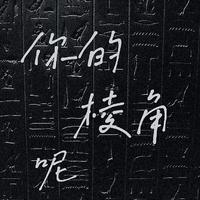 你的
棱角
呢